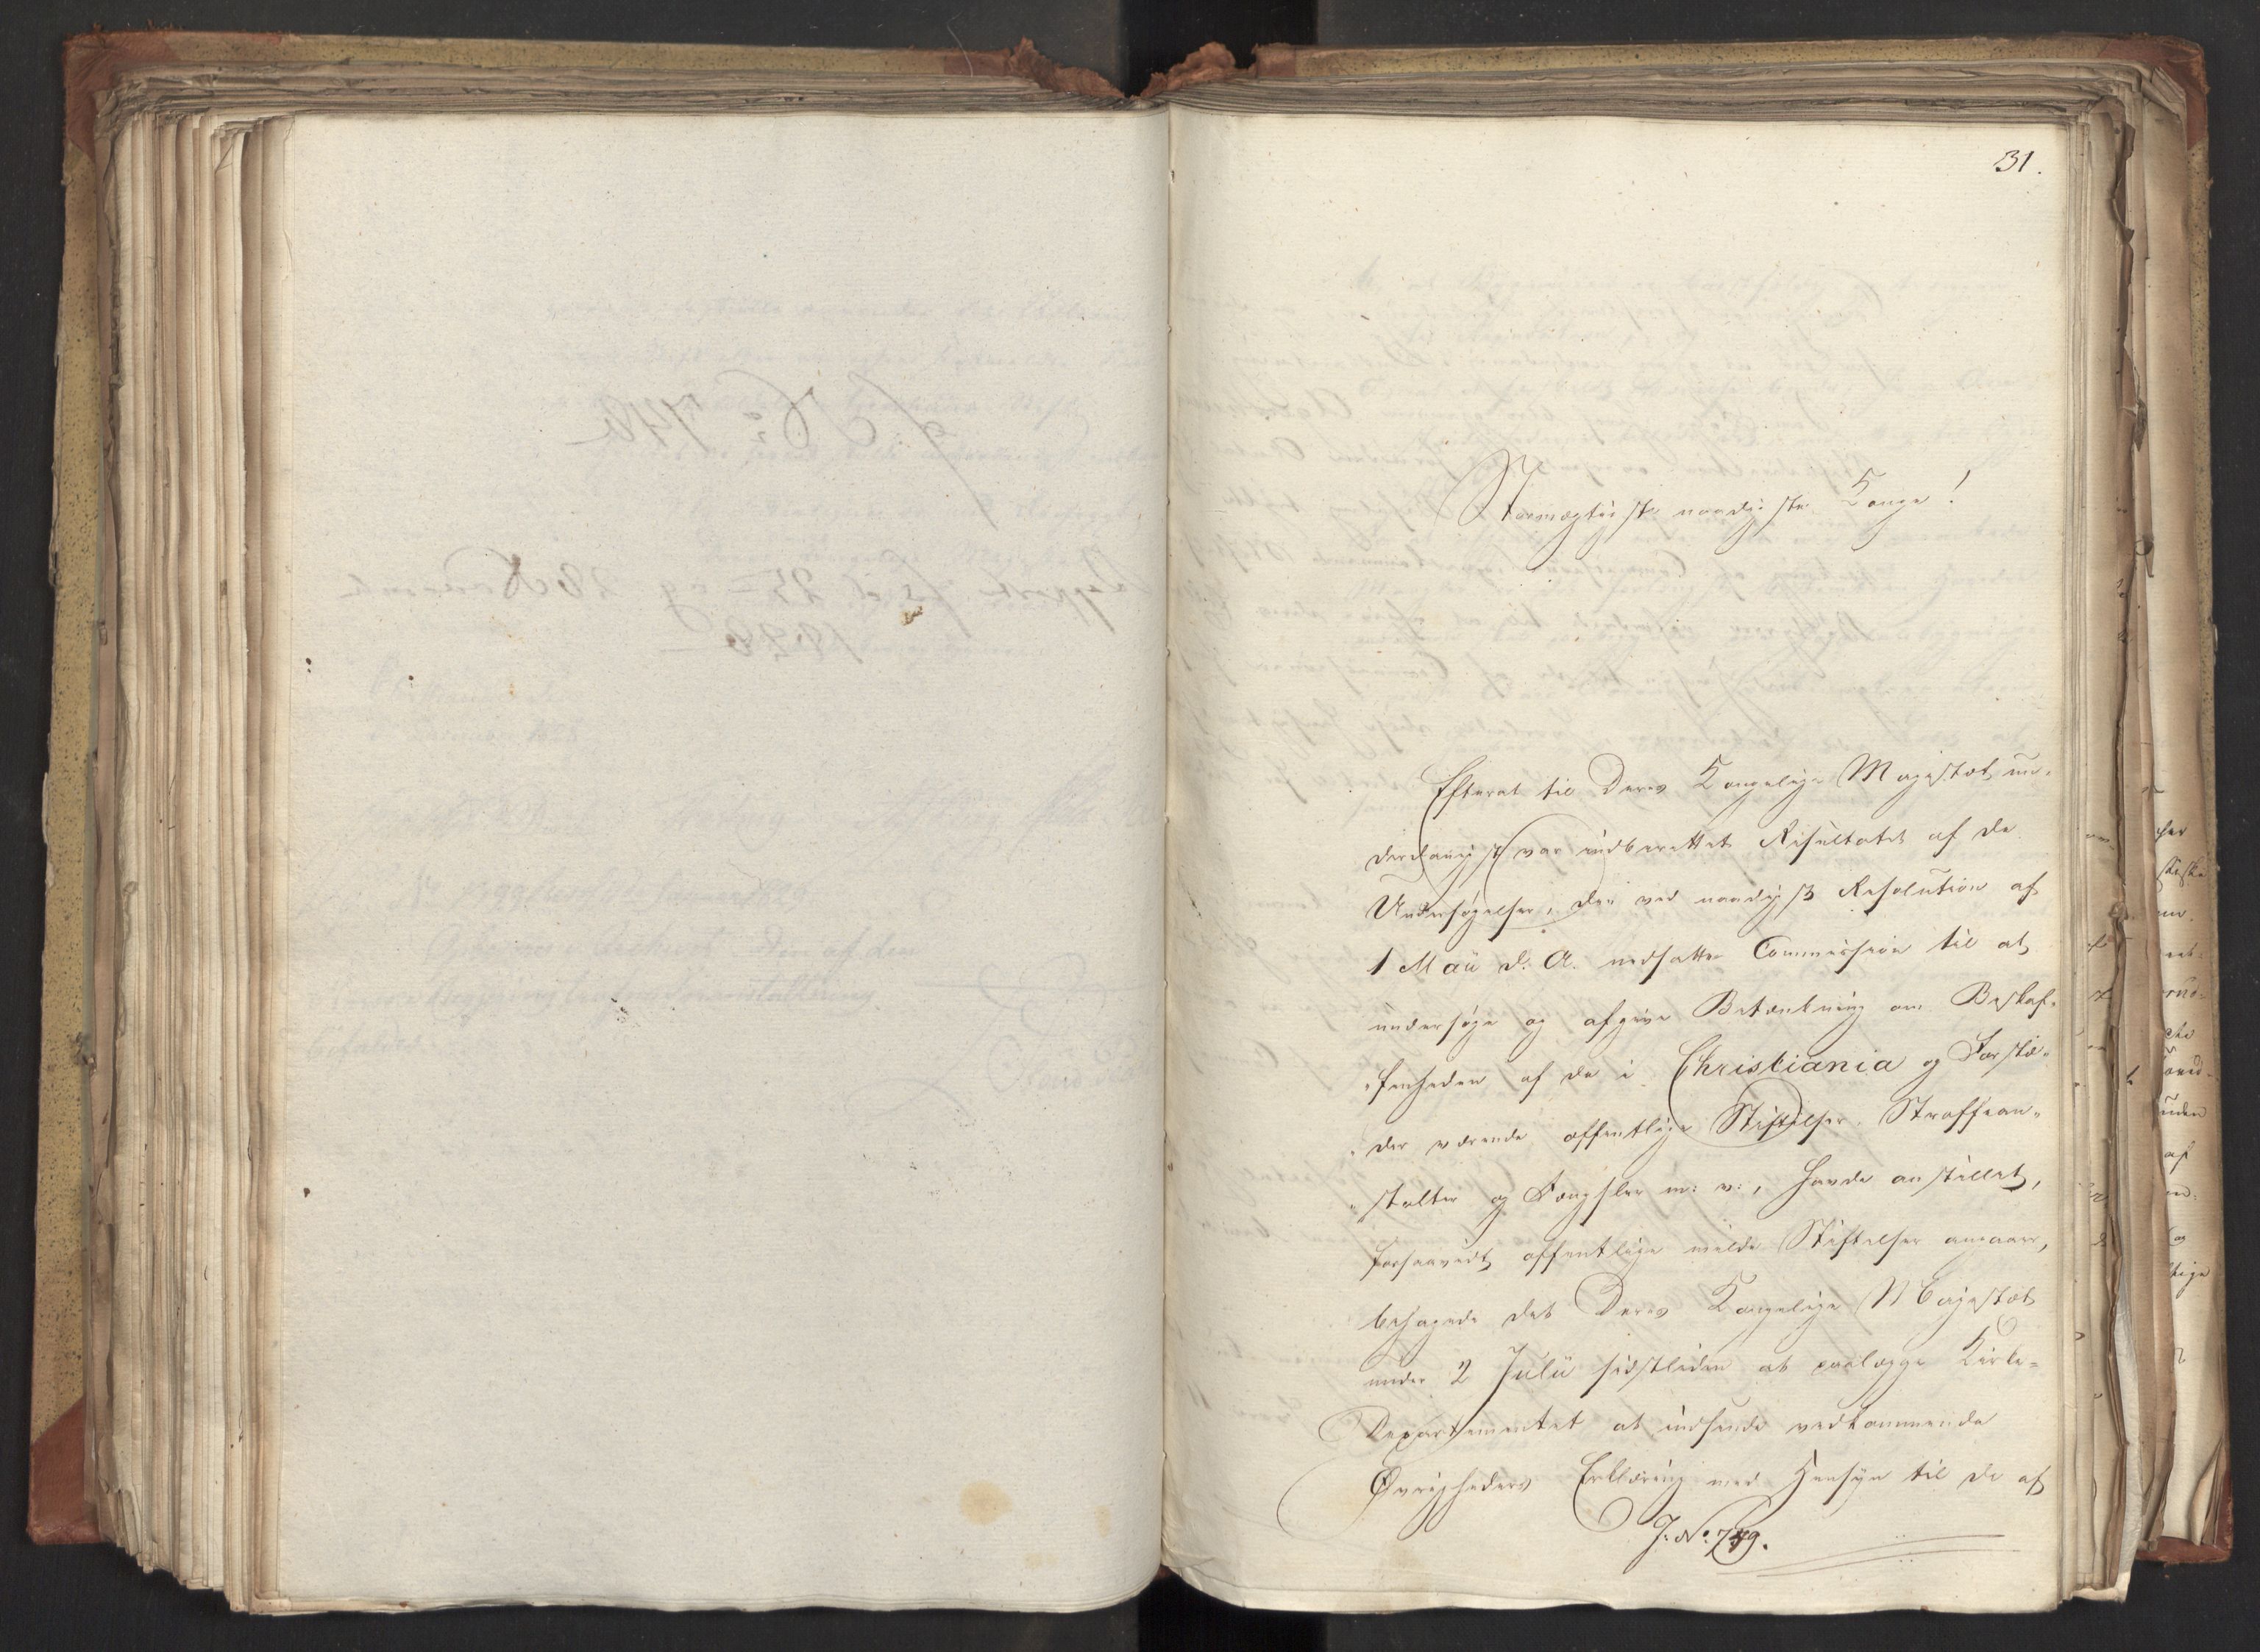 31.
Stormægtigste naadigste Konge!
Efterat til Deres Kongelige Majestæt un-
derdanigst var indberettet Resultatet af de
Undersøgelser, den ved naadigst Resolution af
1 Maii d: A. nedsatte Commission til at
undersøge og afgive Betænkning om Beskaf-
fenheden af de i Christiania og Forstæ-
der værende offentlige Stiftelser, Straffean-
stalter og Fængsler m: v:, havde anstillet,
forsaavidt offentlige milde Stiftelser angaaer,
behagede det Deres Kongelige Majestæt
under 2 Julii sidstleden at paalægge Kirke-
Departementet at indhente vedkommende
Øvrigheders Erklæring med Hensyn til de af
J: No. 749.